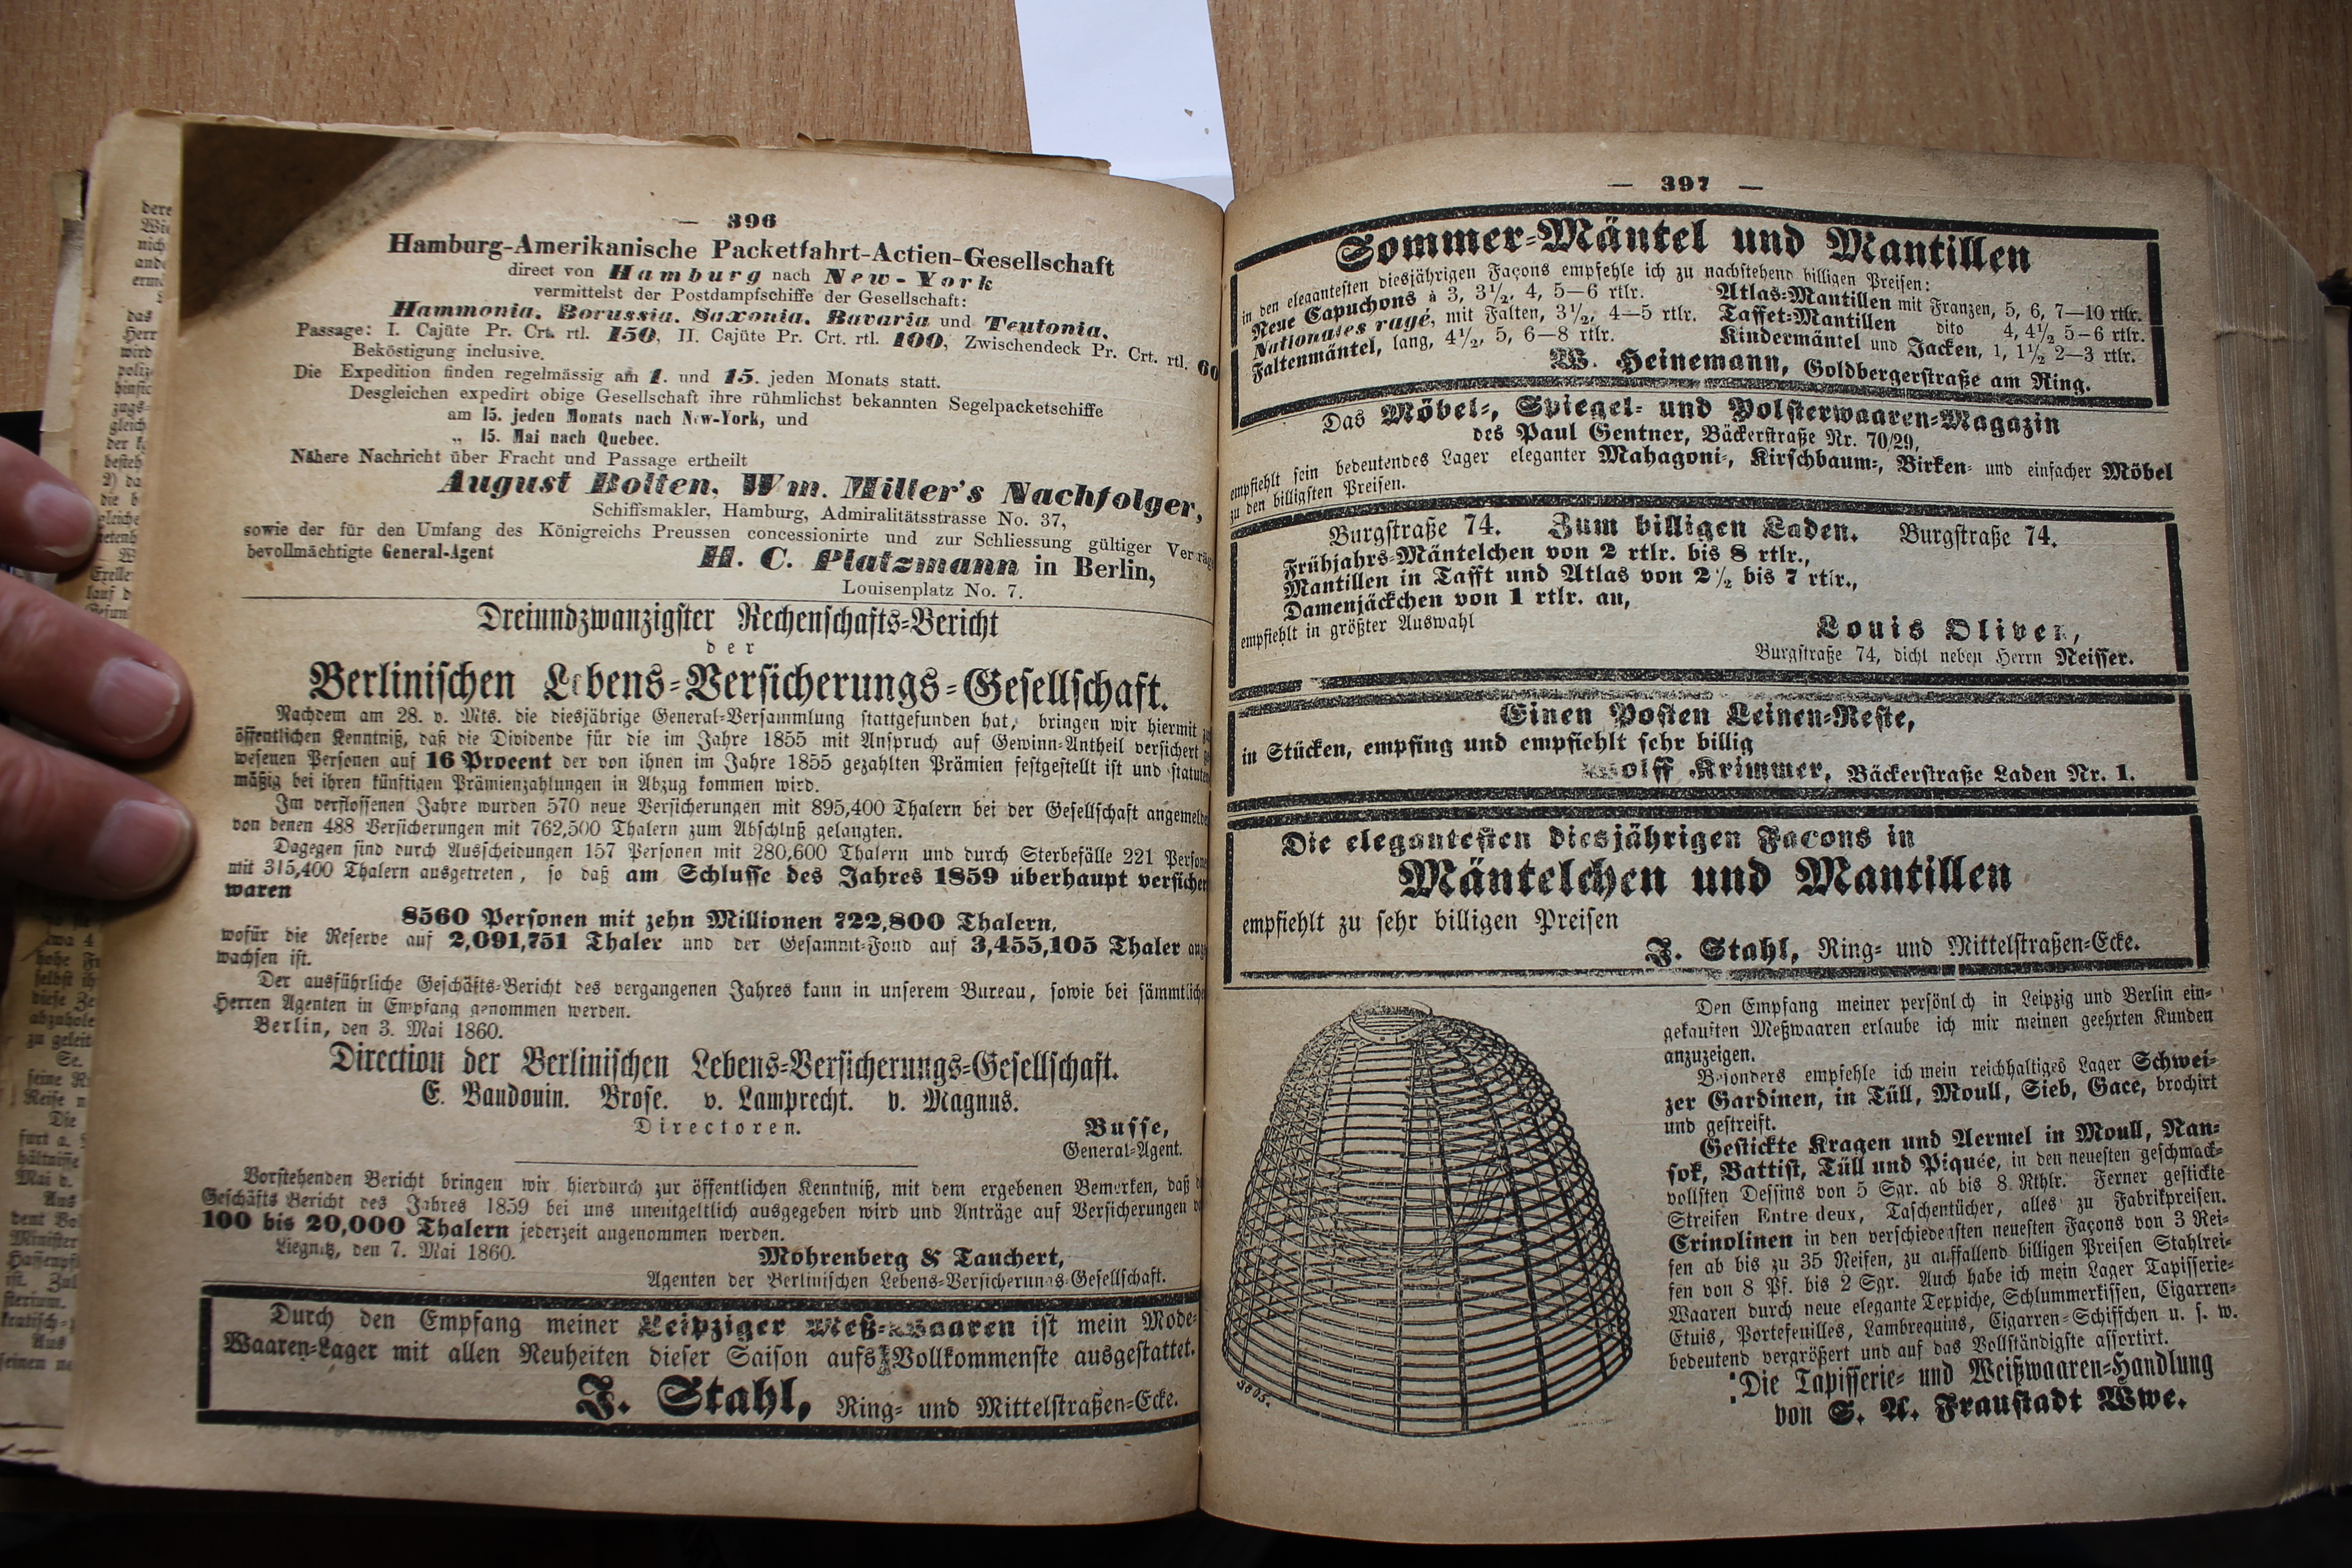 — 396 —
Hamburg-Amerikanische Packetfahrt-Actien-Gesellschaft
direct von Hamburg nach New-York
vermittelst der Postdampfschiffe der Gesellschaft:
Hammonia, Borussia, Saxonia, Bavaria und Teutonia.
Passage: I. Cajüte Pr. Crt. rtl. 150, II. Cajüte Pr. Crt. rtl. 100, Zwischendeck Pr. Crt. rtl. 60
Beköstigung inclusive.
Die Expedition finden regelmässig am 1. und 15. jeden Monats statt.
Desgleichen expedirt obige Gesellschaft ihre rühmlichst bekannten Segelpacketschiffe
am 15. jeden Monats nach New-York, und
„ 15. Mai nach Quebec.
Nähere Nachricht über Fracht und Passage ertheilt
August Bolten, Wm. Miller's Nachfolger,
Schiffsmakler, Hamburg, Admiralitätsstrasse No. 37,
sowie der für den Umfang des Königreichs Preussen concessionirte und zur Schliessung gültiger Verträg
bevollmächtigte General-Agent
H. C. Platzmann in Berlin,
Louisenplatz No. 7.
Dreiundzwanzigster Rechenschafts-Bericht
der
Berlinischen Lebens-Versicherungs-Gesellschaft.
Nachdem am 28. v. Mts. die diesjährige General-Versammlung stattgefunden hat, bringen wir hiermit
öffentlichen Kenntniß, daß die Dividende für die im Jahre 1855 mit Anspruch auf Gewinn-Antheil versichert
wesenen Personen auf 16 Procent der von ihnen im Jahre 1855 gezahlten Prämien festgestellt ist und statuten
mäßig bei ihren künftigen Prämienzahlungen in Abzug kommen wird.
Im verflossenen Jahre wurden 570 neue Versicherungen mit 895,400 Thalern bei der Gesellschaft angemelde
von denen 488 Versicherungen mit 762,500 Thalern zum Abschluß gelangten.
Dagegen sind durch Ausscheidungen 157 Personen mit 280,600 Thalern und durch Sterbefälle 221 Persone
mit 315,400 Thalern ausgetreten, so daß am Schlusse des Jahres 1859 überhaupt versicher
waren
8560 Personen mit zehn Millionen 722,800 Thalern,
wofür die Reserve auf 2,091,751 Thaler und der Gesammt-Fond auf 3,455,105 Thaler ang
wachsen ist.
Der ausführliche Geschäfts-Bericht des vergangenen Jahres kann in unserem Bureau, sowie bei sämmtliche
Herren Agenten in Empfang genommen werden.
Berlin, den 3. Mai 1860.
Direction der Berlinischen Lebens-Versicherungs-Gesellschaft.
E. Baudouin. Brose. v. Lamprecht. v. Magnus.
Directoren.
Busse,
General-Agent.
Vorstehenden Bericht bringen wir hierdurch zur öffentlichen Kenntniß, mit dem ergebenen Bemerken, daß d
Geschäfts Bericht des Jahres 1859 bei uns unentgeltlich ausgegeben wird und Anträge auf Versicherungen v
100 bis 20,000 Thalern jederzeit angenommen werden.
Liegnitz, den 7. Mai 1860.
Mohrenberg & Tauchert,
Agenten der Berlinischen Lebens-Versicherungs-Gesellschaft.
Durch den Empfang meiner Leipziger Meß-Waaren ist mein Mode-
Waaren-Lager mit allen Neuheiten dieser Saison aufs Vollkommenste ausgestattet.
J. Stahl, Ring- und Mittelstraßen-Ecke.
— 397 —
Sommer-Mäntel und Mantillen
in den elegantesten diesjährigen Façons empfehle ich zu nachstehend billigen Preisen:
Neue Capuchons à 3, 3½, 4, 5—6 rtlr.
Nationales rayé, mit Falten, 3½, 4—5 rtlr.
Faltenmäntel, lang, 4½, 5, 6—8 rtlr.
Atlas-Mantillen mit Franzen, 5, 6, 7—10 rtlr.
Taffet-Mantillen dito 4, 4½ 5—6 rtlr.
Kindermäntel und Jacken, 1, 1½ 2—3 rtlr.
W. Heinemann, Goldbergerstraße am Ring.
Das Möbel-, Spiegel- und Polsterwaaren-Magazin
des Paul Gentner, Bäckerstraße Nr. 70/29,
empfiehlt sein bedeutendes Lager eleganter Mahagoni-, Kirschbaum-, Birken- und einfacher Möbel
zu den billigsten Preisen.
Burgstraße 74. Zum billigen Laden. Burgstraße 74.
Frühjahrs-Mäntelchen von 2 rtlr. bis 8 rtlr.,
Mantillen in Tafft und Atlas von 2½ bis 7 rtlr.,
Damenjäckchen von 1 rtlr. an,
empfiehlt in größter Auswahl
Louis Oliven,
Burgstraße 74, dicht neben Herrn Neisser.
Einen Posten Leinen-Reste,
in Stücken, empfing und empfiehlt sehr billig
Krimmer, Bäckerstraße Laden Nr. 1.
Die elegantesten diesjährigen Façons in
Mäntelchen und Mantillen
empfiehlt zu sehr billigen Preisen
J. Stahl, Ring- und Mittelstraßen-Ecke.
3805.
Den Empfang meiner persönlich in Leipzig und Berlin ein-
gekauften Meßwaaren erlaube ich mir meinen geehrten Kunden
anzuzeigen.
Besonders empfehle ich mein reichhaltiges Lager Schwei-
zer Gardinen, in Tüll, Moull, Sieb, Gace, brochirt
und gestreift.
Gestickte Kragen und Aermel in Moull, Nan-
sok, Battist, Tüll und Piquée, in den neuesten geschmack-
vollsten Dessins von 5 Sgr. ab bis 8 Rthlr. Ferner gestickte
Streifen Entre deux, Taschentücher, alles zu Fabrikpreisen.
Crinolinen in den verschiedensten neuesten Façons von 3 Rei-
fen ab bis zu 35 Reifen, zu auffallend billigen Preisen Stahlrei-
fen von 8 Pf. bis 2 Sgr. Auch habe ich mein Lager Tapisserie-
Waaren durch neue elegante Teppiche, Schlummerkissen, Cigarren-
Etuis, Portefeuilles, Lambrequins, Cigarren-Schiffchen u. s. w.
bedeutend vergrößert und auf das Vollständigste assortirt.
Die Tapisserie- und Weißwaaren-Handlung
von S. A. Fraustadt Wwe.